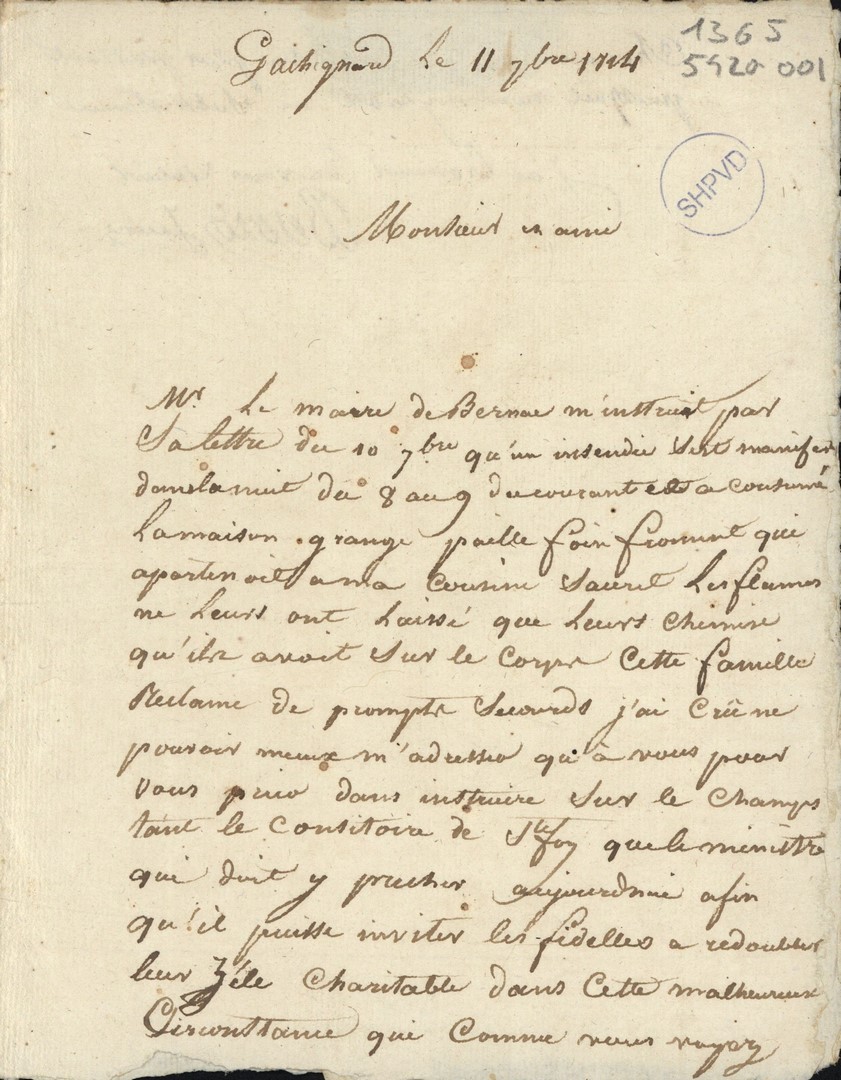 1365
5920 001
Gachignard le 11 7bre 1814
SHPVD
Monsieur et ami
Mr le maire de Bernac m'instruit par
Sa lettre du 10 7bre qu'un insendie sest manifes
dans la nuit du 8 au 9 du courant et a consumé
la maison grange paille foin froment qui
apartenoit a ma cousine Sauret les flames
ne leurs ont laissé que leurs chemise
qu'ils avoit sur le corps cette famille
Reclame de prompts secourds j'ai crü ne
pouvoir mieux m'adresser qu'à vous pour
vous prier dans instruire sur le champs
tant le consitoire de Ste foy que le ministre
qui doit y precher aujourdhui afin
qu'il puisse inviter les fidelles a redoubler
leur Zéle charitable dans cette malheureuse
Circonstance qui comme vous voyez